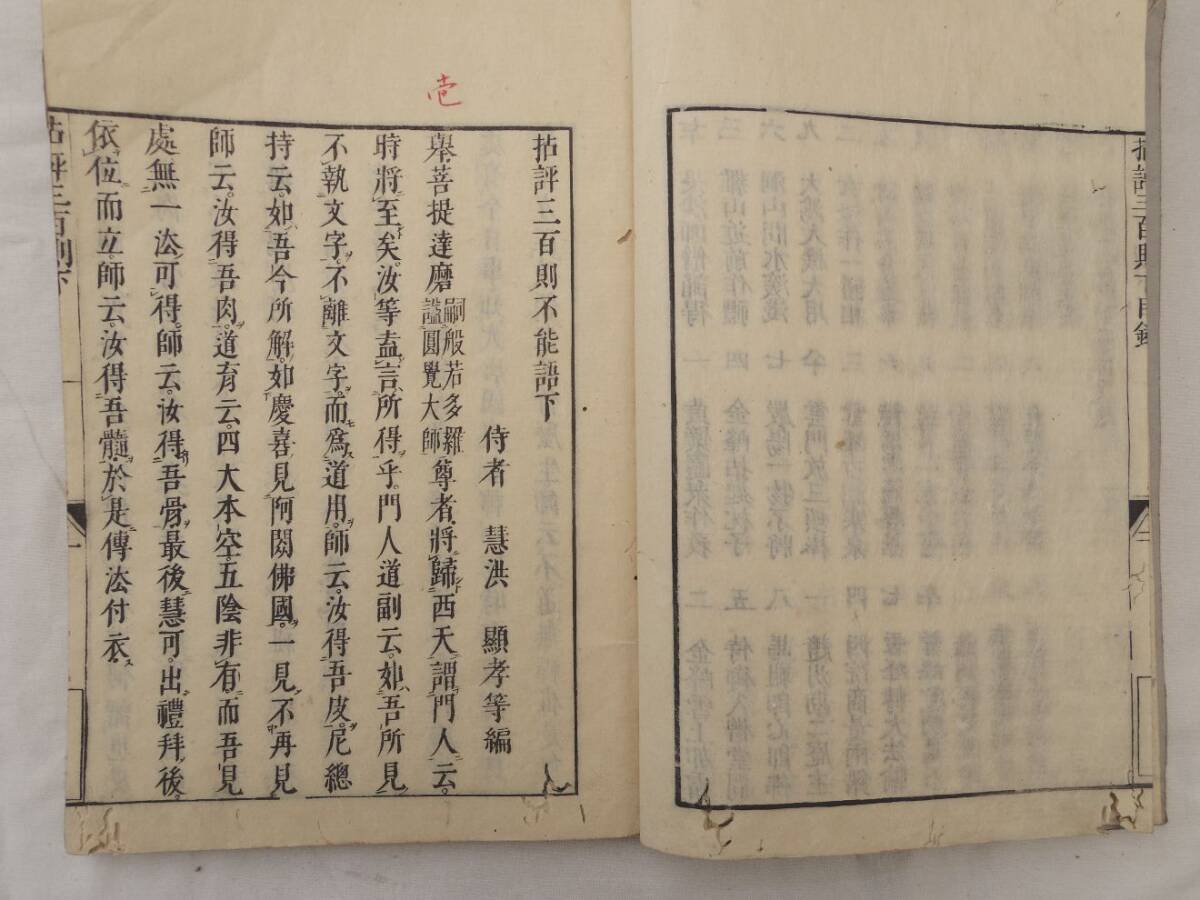 拈評三百則下目錄
壱
拈評三百則不能語下
侍者 慧洪 顯孝等編
舉菩提達磨嗣般若多羅尊者謚圓覺大師將歸西天謂門人云
時將至矣汝等盍言所得乎門人道副云如吾所見
不執文字不離文字而爲道用師云汝得吾皮尼總
持云如吾今所解如慶喜見阿閦佛國一見不再見
師云汝得吾肉道育云四大本空五陰非有而吾見
處無一法可得師云汝得吾骨最後慧可出禮拜後
依位而立師云汝得吾髓於是傳法付衣
拈評三百則下
一